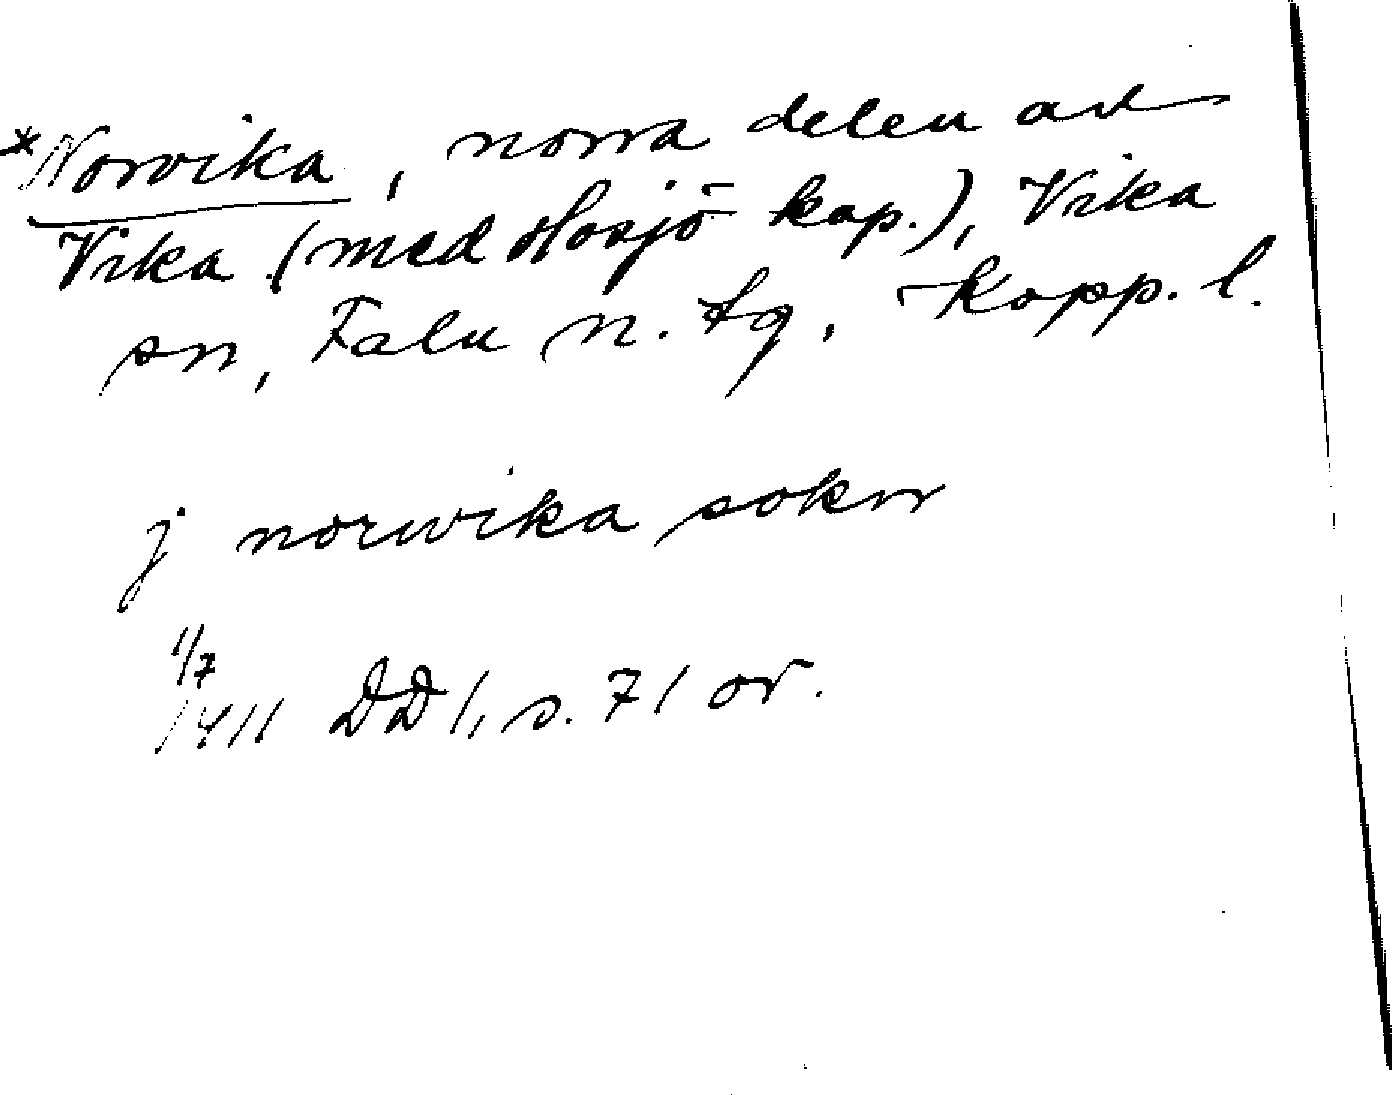 *Norvika, norra delen av
Vika (med Hosjö kap.), Vika
sn, Falu n. tg, Kopp. l.
j norwika sokn
1/7
1411 DD 1, s. 71 or.